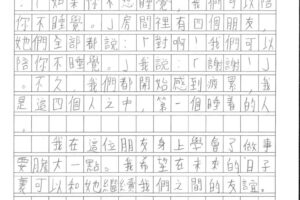 :「如果你不想睡覺,我們可以陪
你不睡覺。」房間裡有四個朋友,
她們全部都說:「對啊!我們可以
陪你不睡覺。」我說:「謝謝!」
。不久,我們都開始感到疲累,我
是這四個人之中,第一個睡着的人
。
我在這位朋友身上學會了做事
要膽大一點。我希望在未來的日子
裏可以和她繼續我們之間的友誼。